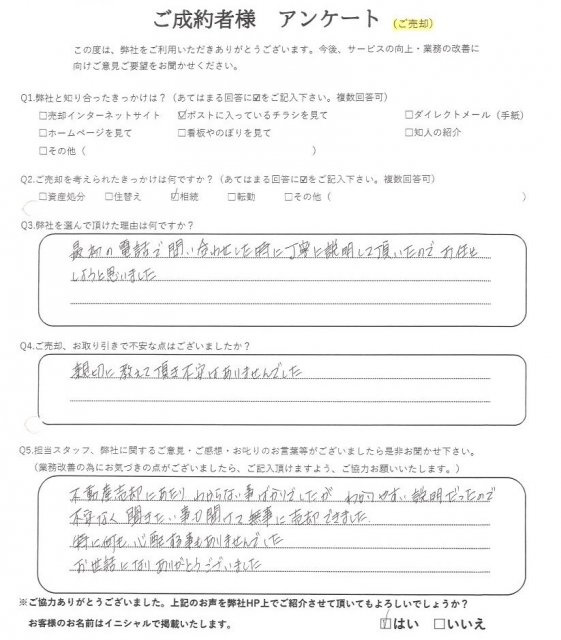 ご成約者様　アンケート （ご売却）
この度は、弊社をご利用いただきありがとうございます。今後、サービスの向上・業務の改善に
向けご意見ご要望をお聞かせください。
Q1.弊社と知り合ったきっかけは？（あてはまる回答に☑をご記入下さい。複数回答可）
□売却インターネットサイト　☑ポストに入っているチラシを見て　□ダイレクトメール（手紙）
□ホームページを見て　□看板やのぼりを見て　□知人の紹介
□その他（　　　）
Q2.ご売却を考えられたきっかけは何ですか？（あてはまる回答に☑をご記入下さい。複数回答可）
□資産処分　□住替え　☑相続　□転勤　□その他（　　　）
Q3.弊社を選んで頂けた理由は何ですか？
最初の電話で問い合わせした時に丁寧に説明して頂いたので お任せ
しようと思いました
Q4.ご売却、お取り引きで不安な点はございましたか？
親切に教えて頂き不安はありませんでした
Q5.担当スタッフ、弊社に関するご意見・ご感想・お叱りのお言葉等がございましたら是非お聞かせ下さい。
（業務改善の為にお気づきの点がございましたら、ご記入頂けますよう、ご協力お願いいたします。）
不動産売却にあたり わからない事ばかりでしたが わかりやすい説明だったので
不安なく 聞きたい事も聞けて 無事に売却できました
特に何も 心配する事もありませんでした
お世話になり ありがとうございました
※ご協力ありがとうございました。上記のお声を弊社HP上でご紹介させて頂いてもよろしいでしょうか？
お客様のお名前はイニシャルで掲載いたします。　☑はい　□いいえ